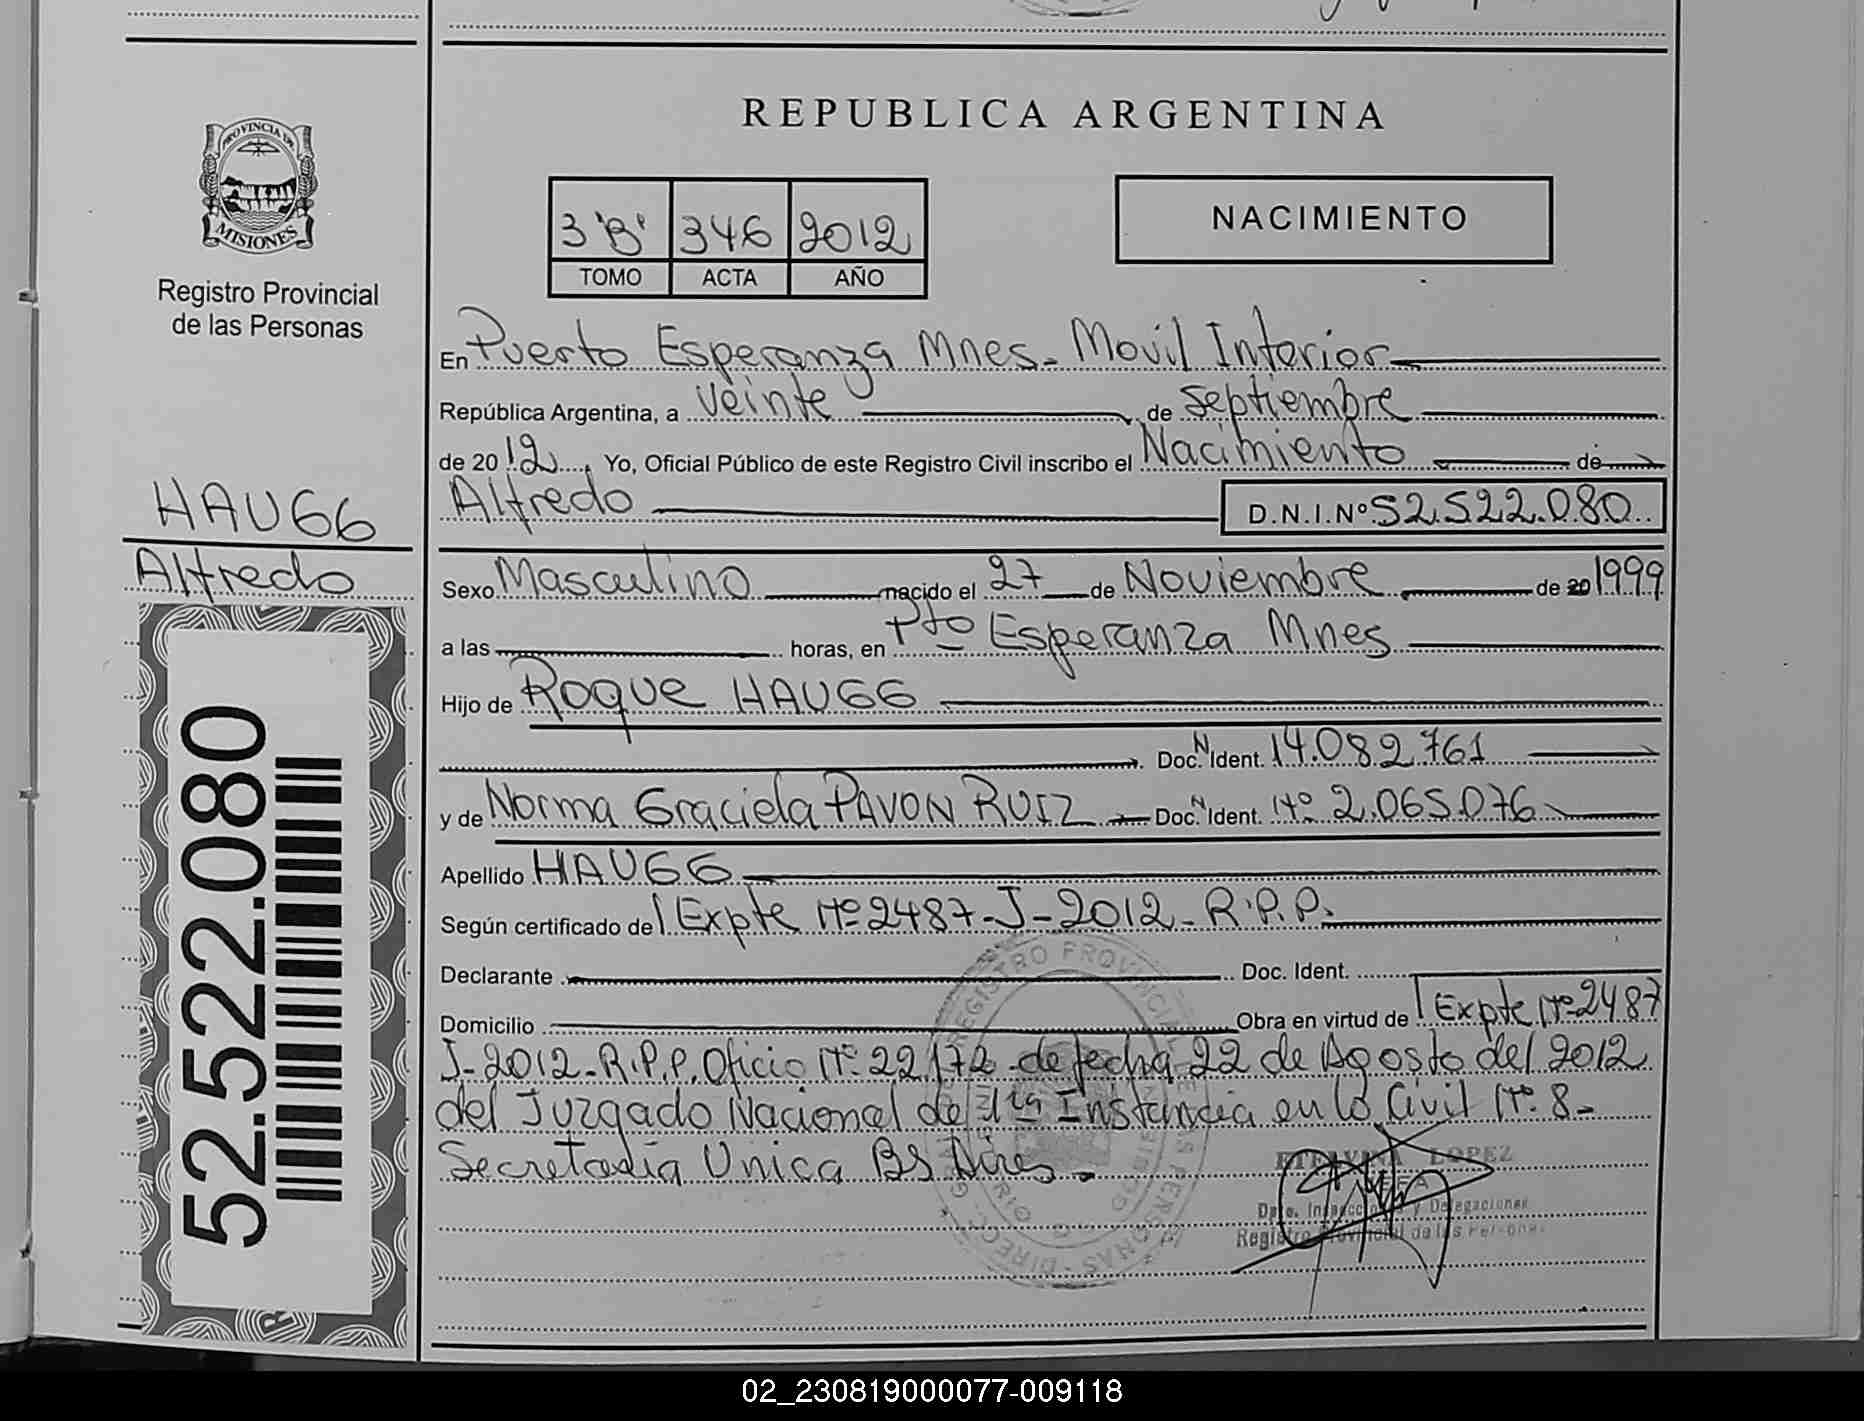 REPUBLICA ARGENTINA
PROVINCIA DE
MISIONES
Registro Provincial
de las Personas
3 "B" 346 2012
TOMO ACTA AÑO
NACIMIENTO
En Puerto Esperanza Mnes- Movil Interior
República Argentina, a veinte de septiembre
de 2012, Yo, Oficial Público de este Registro Civil inscribo el Nacimiento de
Alfredo D.N.I.Nº 52.522.080
HAUGG
Alfredo
52.522.080
Sexo Masculino nacido el 27 de Noviembre de 20 1999
a las horas, en Pto Esperanza Mnes
Hijo de Roque HAUGG
Doc. N Ident. 14.082.761
y de Norma Graciela PAVON RUIZ Doc. N Ident. Nº 2.065.076
Apellido HAUGG
Según certificado de Expte Nº 2487-J-2012-R.P.P.
Declarante Doc. Ident.
Domicilio Obra en virtud de Expte Nº 2487
J-2012-R.P.P. Oficio Nº 22.172 de fecha 22 de Agosto del 2012
del Juzgado Nacional de 1ra Instancia en lo Civil Nº 8-
Secretaria Unica BS Aires-
ETELVINA LOPEZ
JEFA
Dpto. Inspección y Delegaciones
Registro Provincial de las Personas
REGISTRO PROVINCIAL DE LAS PERSONAS
02_230819000077-009118